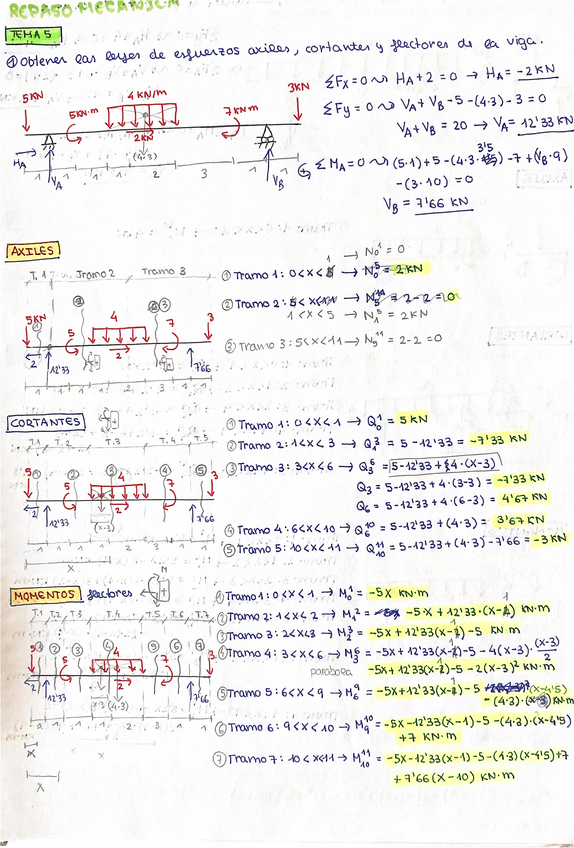 REPASO MECANICA
TEMA 5
① Obtener las leyes de esfuerzos axiles, cortantes y flectores de la viga.
5KN
5KN·m
4 KN/m
7 KN·m
3KN
2KN
(4·3)
H_A
V_A
V_B
1 1 1 2 3 1 1
ΣFx=0 → H_A + 2 = 0 → H_A = -2 KN
ΣFy=0 → V_A + V_B - 5 - (4·3) - 3 = 0
V_A + V_B = 20 → V_A = 12'33 KN
ΣM_A=0 → (5·1) + 5 - (4·3·3'5) - 7 + (V_B·9)
- (3·10) = 0
V_B = 7'66 KN
AXILES
T.1 Tramo 2 Tramo 3
5KN
5
4
7
3
2
2
12'33
7'66
→ N₀¹ = 0
① Tramo 1: 0<x<1
② Tramo 2:
1<x<5 → N₁⁵ = 2KN
③ Tramo 3: 5<x<11 → N₅¹¹ = 2-2 = 0
CORTANTES
T.1 T.2 T.3 T.4 T.5
5
5
4
7
3
2
2
12'33
7'66
x
① Tramo 1: 0<x<1 → Q₀¹ = 5 KN
② Tramo 2: 1<x<3 → Q₁³ = 5 - 12'33 = -7'33 KN
③ Tramo 3: 3<x<6 → Q₃⁶ = 5-12'33 + 4·(x-3)
Q₃ = 5-12'33 + 4·(3-3) = -7'33 KN
Q₆ = 5-12'33 + 4·(6-3) = 4'67 KN
④ Tramo 4: 6<x<10 → Q₆¹⁰ = 5-12'33 + (4·3) = 3'67 KN
⑤ Tramo 5: 10<x<11 → Q₁₀¹¹ = 5-12'33+(4·3)-7'66 = -3 KN
MOMENTOS flectores
T.1 T.2 T.3 T.4 T.5 T.6 T.7
5
5
4
7
3
2
2
12'33
(4·3)
7'66
x
x
① Tramo 1: 0<x<1 → M₀¹ = -5x KN·m
② Tramo 2: 1<x<2 → M₁² = -5x + 12'33·(x-1) KN·m
③ Tramo 3: 2<x<3 → M₂³ = -5x + 12'33(x-1) - 5 KN·m
④ Tramo 4: 3<x<6 → M₃⁶ = -5x + 12'33(x-1) - 5 - 4(x-3)·(x-3)/2
parábola
-5x + 12'33(x-1) - 5 - 2(x-3)² KN·m
⑤ Tramo 5: 6<x<9 → M₆⁹ = -5x + 12'33(x-1) - 5
- (4·3)·(x-4'5) KN·m
⑥ Tramo 6: 9<x<10 → M₉¹⁰ = -5x-12'33(x-1)-5-(4·3)·(x-4'5)
+7 KN·m
⑦ Tramo 7: 10<x<11 → M₁₀¹¹ = -5x-12'33(x-1)-5-(4·3)(x-4'5)+7
+ 7'66(x-10) KN·m